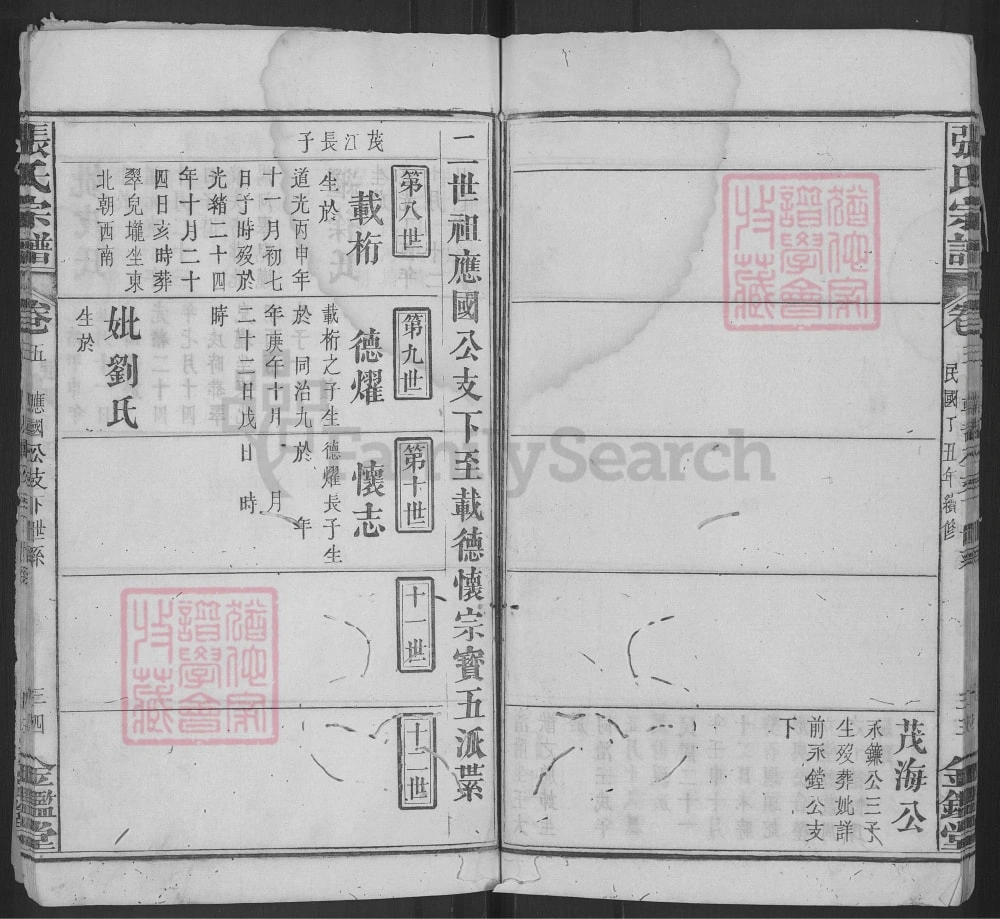 張氏宗譜
卷
民國丁丑年續修
金鑑堂
茂海公
承鐮公三子
生歿葬妣詳
前承鏜公支
下
二世祖應國公支下至載德懷宗寶五派業
第八世
茂江長子
載桁
生於
道光丙申年
十一月初七
日子時歿於
光緒二十四
年十月二十
四日亥時葬
翠兒壠坐東
北朝西南
第九世
德燿
載桁之子生
於同治九
年庚午十月
二十二日戌
時
妣劉氏
生於
第十世
懷志
德燿長子生
於 年
月
日 時
十一世
十二世
張氏宗譜
卷五
應國公支下世系
三四
金鑑堂
譜學會
FamilySearch